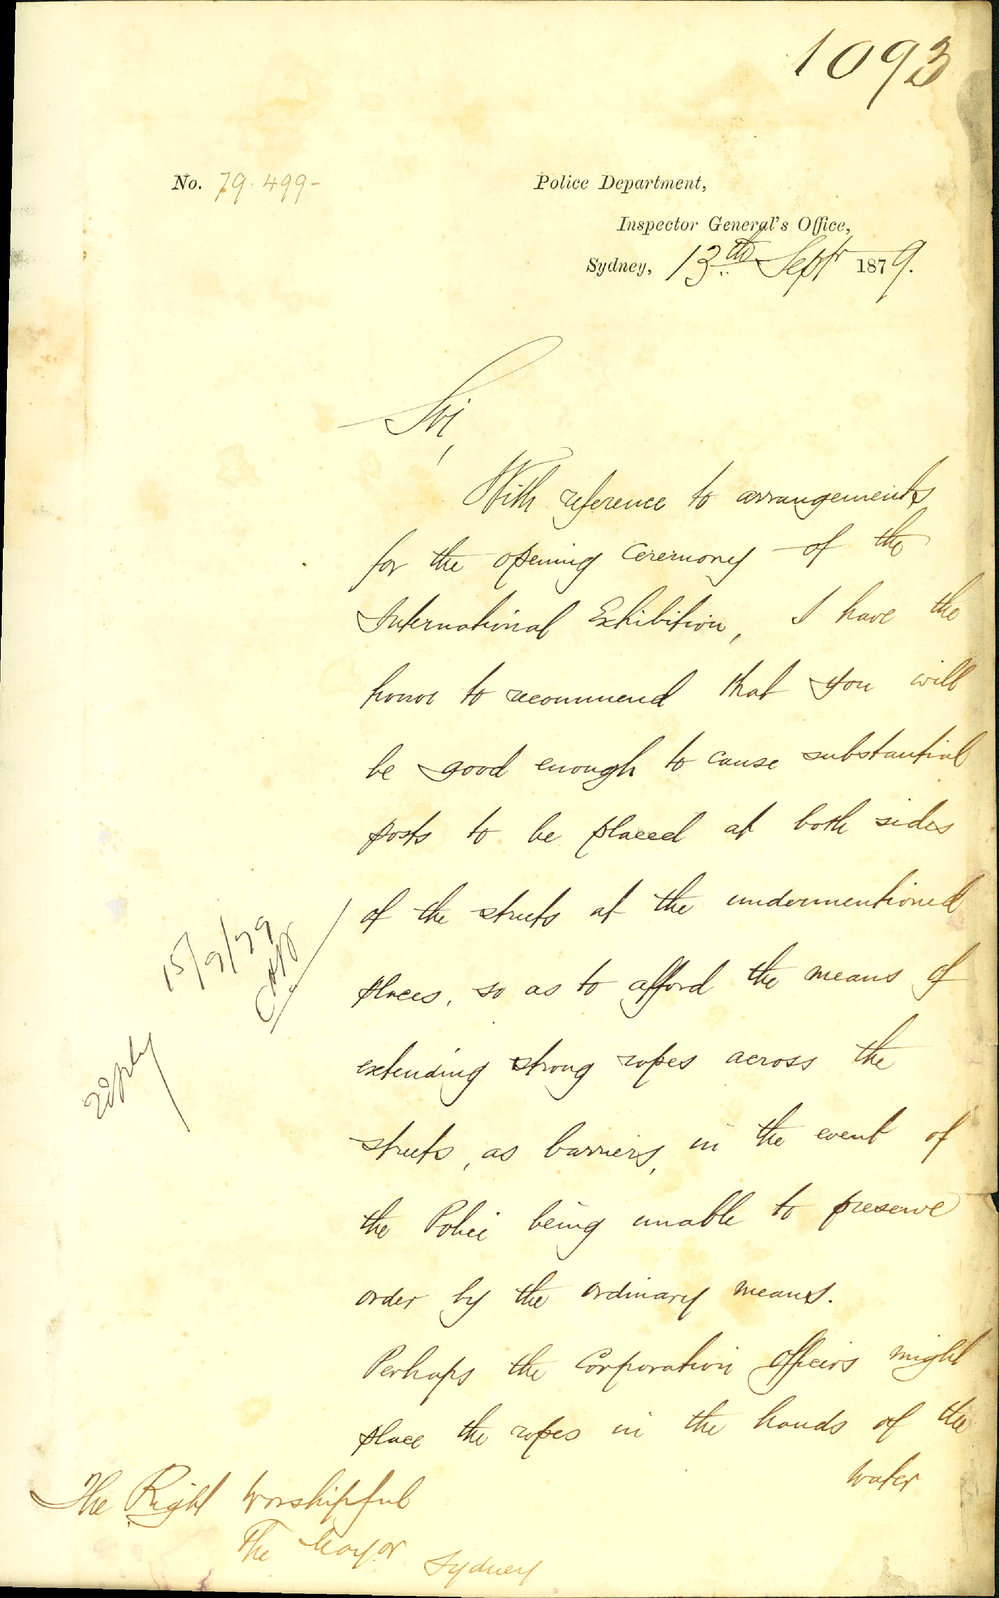 1093
No. 79.499-
Police Department,
Inspector General's Office,
Sydney, 13th Sept 1879.
Sir,
With reference to arrangements
for the opening Ceremony of the
International Exhibition, I have the
honor to recommend that you will
be good enough to cause substantial
posts to be placed at both sides
of the streets at the undermentioned
places, so as to afford the means of
extending strong ropes across the
streets, as barriers, in the event of
the Police being unable to preserve
order by the ordinary means.
Perhaps the Corporation Officers might
place the ropes in the hands of the
water
15/9/79
reply
The Right Worshipful
The Mayor
Sydney